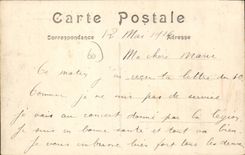 Carte Postale
Correspondance Adresse
12 Mai
60
Ma chère Marie
Ce matin j'ai reçu ta lettre du 10
Comme je ne suis pas de service
je vais au concert donné par la
Je suis en bonne santé et tout va bien
Je vous embrasse bien fort tous les deux